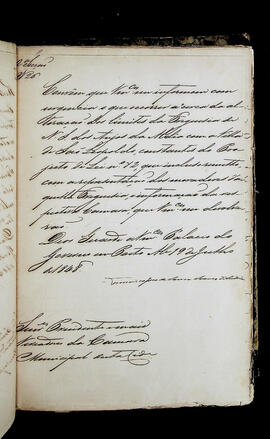 Convém que V.ces me informem com
urgencia o que occorre ácerca da al-
teração dos limites da Freguezia de
N. S. dos Anjos da Aldeia com a Villa
de São Leopoldo, constantes do Pro-
jecto de Lei n.º 12, que incluso remetto
com a representação dos moradores da-
quella Freguezia, e informação da res-
pectiva Camara, que V.ces me devolve-
rão.
Deos Guarde a V.ces Palacio do
Governo em Porto Ale 19 de Julho
de 1848
Senr.s Presidente e mais
Vereadores da Camara
Municipal desta Cid.e